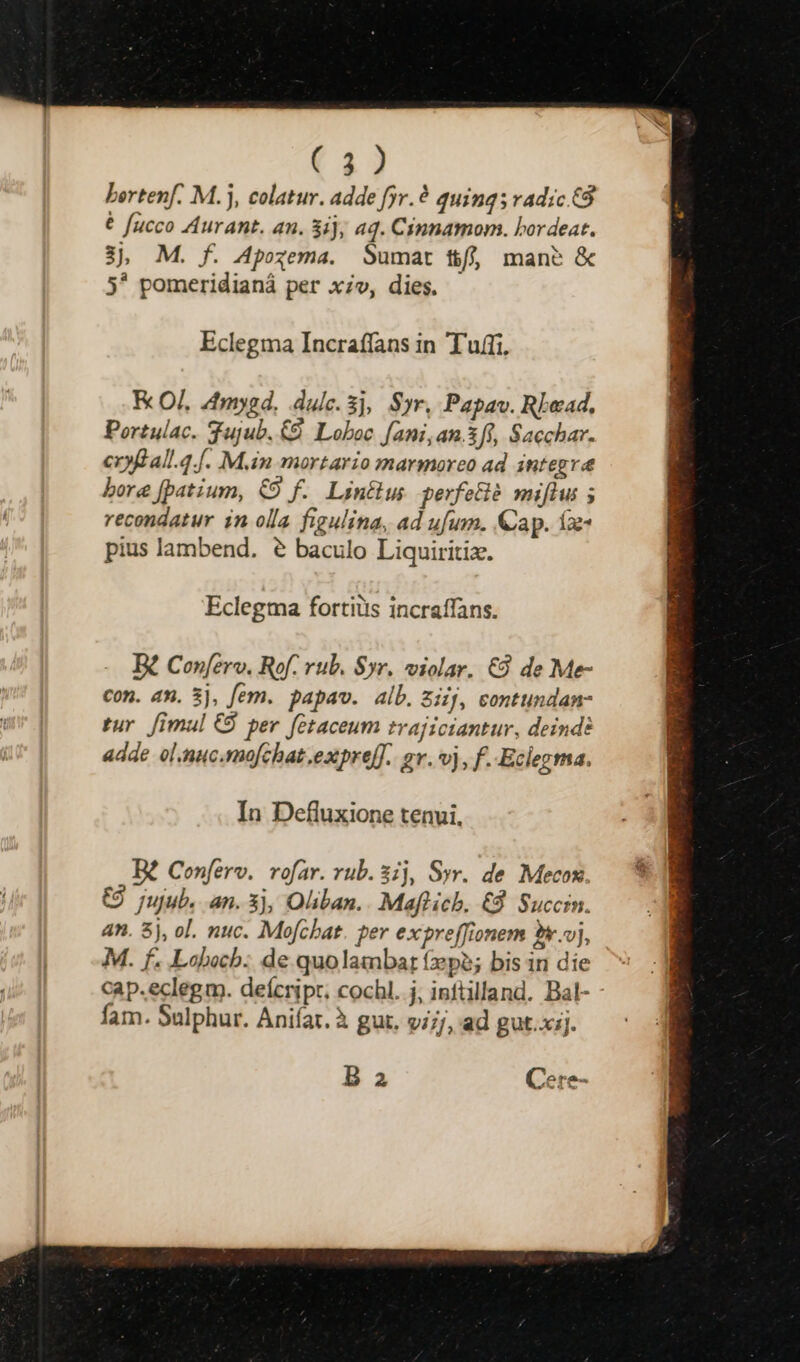 ( 3 )
hortenſ. M. j, colatur. adde ſyr. è quinq; radic. &
è ſucco Aurant. an. ℥ij, aq. Cinnamom. hordeat.
℥j, M. f. Apozema. Sumat ℔ß, manè &
5ª pomeridianâ per xiv, dies.
Eclegma Incraſſans in Tuſſi.
℞ Ol. Amygd. dulc. ℥j, Syr. Papav. Rhœad.
Portulac. Jujub. & Lohoc ſani, an. ℥ß, Sacchar.
cryſtall. q.ſ. M. in mortario marmoreo ad integræ
horæ ſpatium, & f. Linctus perfectè miſtus ;
recondatur in olla figulina, ad uſum. Cap. ſæ-
pius lambend. è baculo Liquiritiæ.
Eclegma fortiùs incraſſans.
℞ Conſerv. Roſ. rub. Syr. violar. & de Me-
con. an. ℥j, ſem. papav. alb. ʒiij, contundan-
tur ſimul & per ſetaceum trajiciantur, deindè
adde ol. nuc. moſchat. expreſſ. gr. vj, f. Eclegma.
In Defluxione tenui.
℞ Conſerv. roſar. rub. ℥ij, Syr. de Mecon.
& jujub. an. ℥j, Oliban. Maſtich. & Succin.
an. ʒj, ol. nuc. Moſchat. per expreſſionem gr. vj,
M. f. Lohoch. de quo lambat ſæpè; bis in die
cap. eclegm. deſcript. cochl. j, inſtilland. Bal-
ſam. Sulphur. Aniſat. à gut. viij, ad gut. xij.
B 2 Cere-